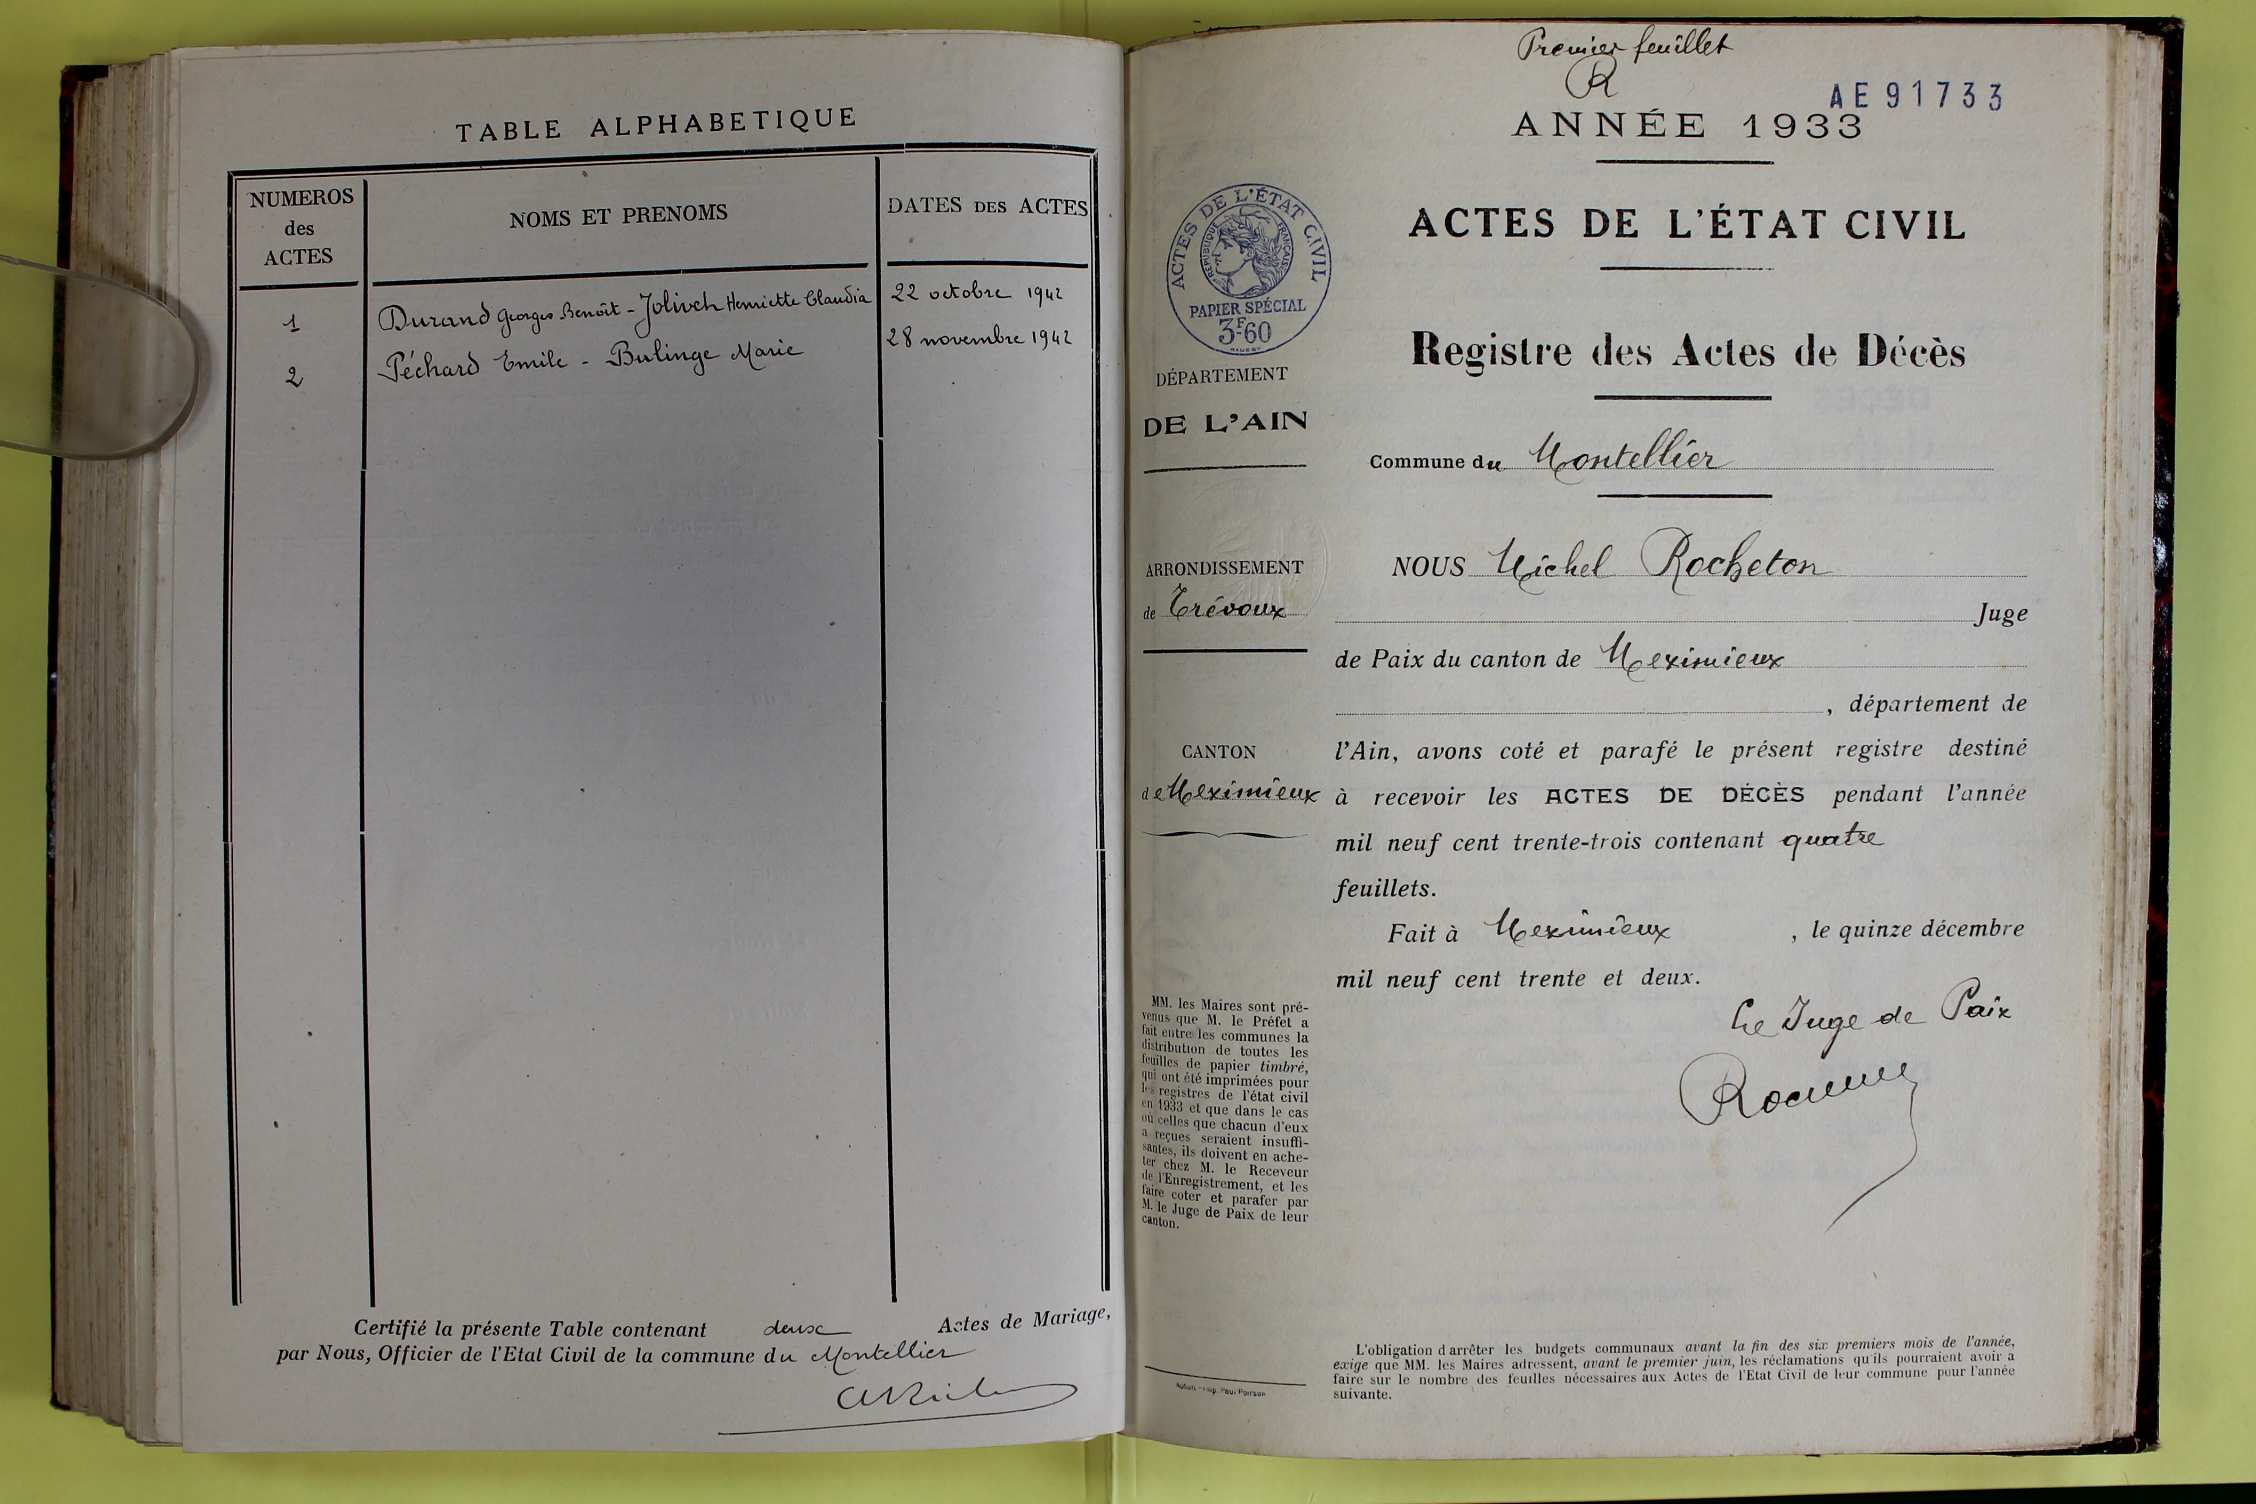 TABLE ALPHABETIQUE
NUMEROS
des
ACTES
NOMS ET PRENOMS
DATES DES ACTES
1
Durand Georges Benoît - Jolivet Henriette Claudia
22 octobre 1942
2
Péchard Emile - Bulinge Marie
28 novembre 1942
Certifié la présente Table contenant deux Actes de Mariage,
par Nous, Officier de l'Etat Civil de la commune du Montellier
Premier feuillet
R
AE91733
ANNÉE 1933
ACTES DE L'ÉTAT CIVIL
Registre des Actes de Décès
Commune du Montellier
ACTES DE L'ÉTAT CIVIL
RÉPUBLIQUE FRANÇAISE
PAPIER SPÉCIAL
3F60
DÉPARTEMENT
DE L'AIN
ARRONDISSEMENT
de Trévoux
CANTON
de Meximieux
MM. les Maires sont pré-
venus que M. le Préfet a
fait entre les communes la
distribution de toutes les
feuilles de papier timbré,
qui ont été imprimées pour
les registres de l'état civil
en 1933 et que dans le cas
où celles que chacun d'eux
a reçues seraient insuffi-
santes, ils doivent en ache-
ter chez M. le Receveur
de l'Enregistrement, et les
faire coter et parafer par
M. le Juge de Paix de leur
canton.
NOUS Michel Rocheton
Juge
de Paix du canton de Meximieux
, département de
l'Ain, avons coté et parafé le présent registre destiné
à recevoir les ACTES DE DÉCÈS pendant l'année
mil neuf cent trente-trois contenant quatre
feuillets.
Fait à Meximieux , le quinze décembre
mil neuf cent trente et deux.
Le Juge de Paix
L'obligation d'arrêter les budgets communaux avant la fin des six premiers mois de l'année,
exige que MM. les Maires adressent, avant le premier juin, les réclamations qu'ils pourraient avoir à
faire sur le nombre des feuilles nécessaires aux Actes de l'Etat Civil de leur commune pour l'année
suivante.